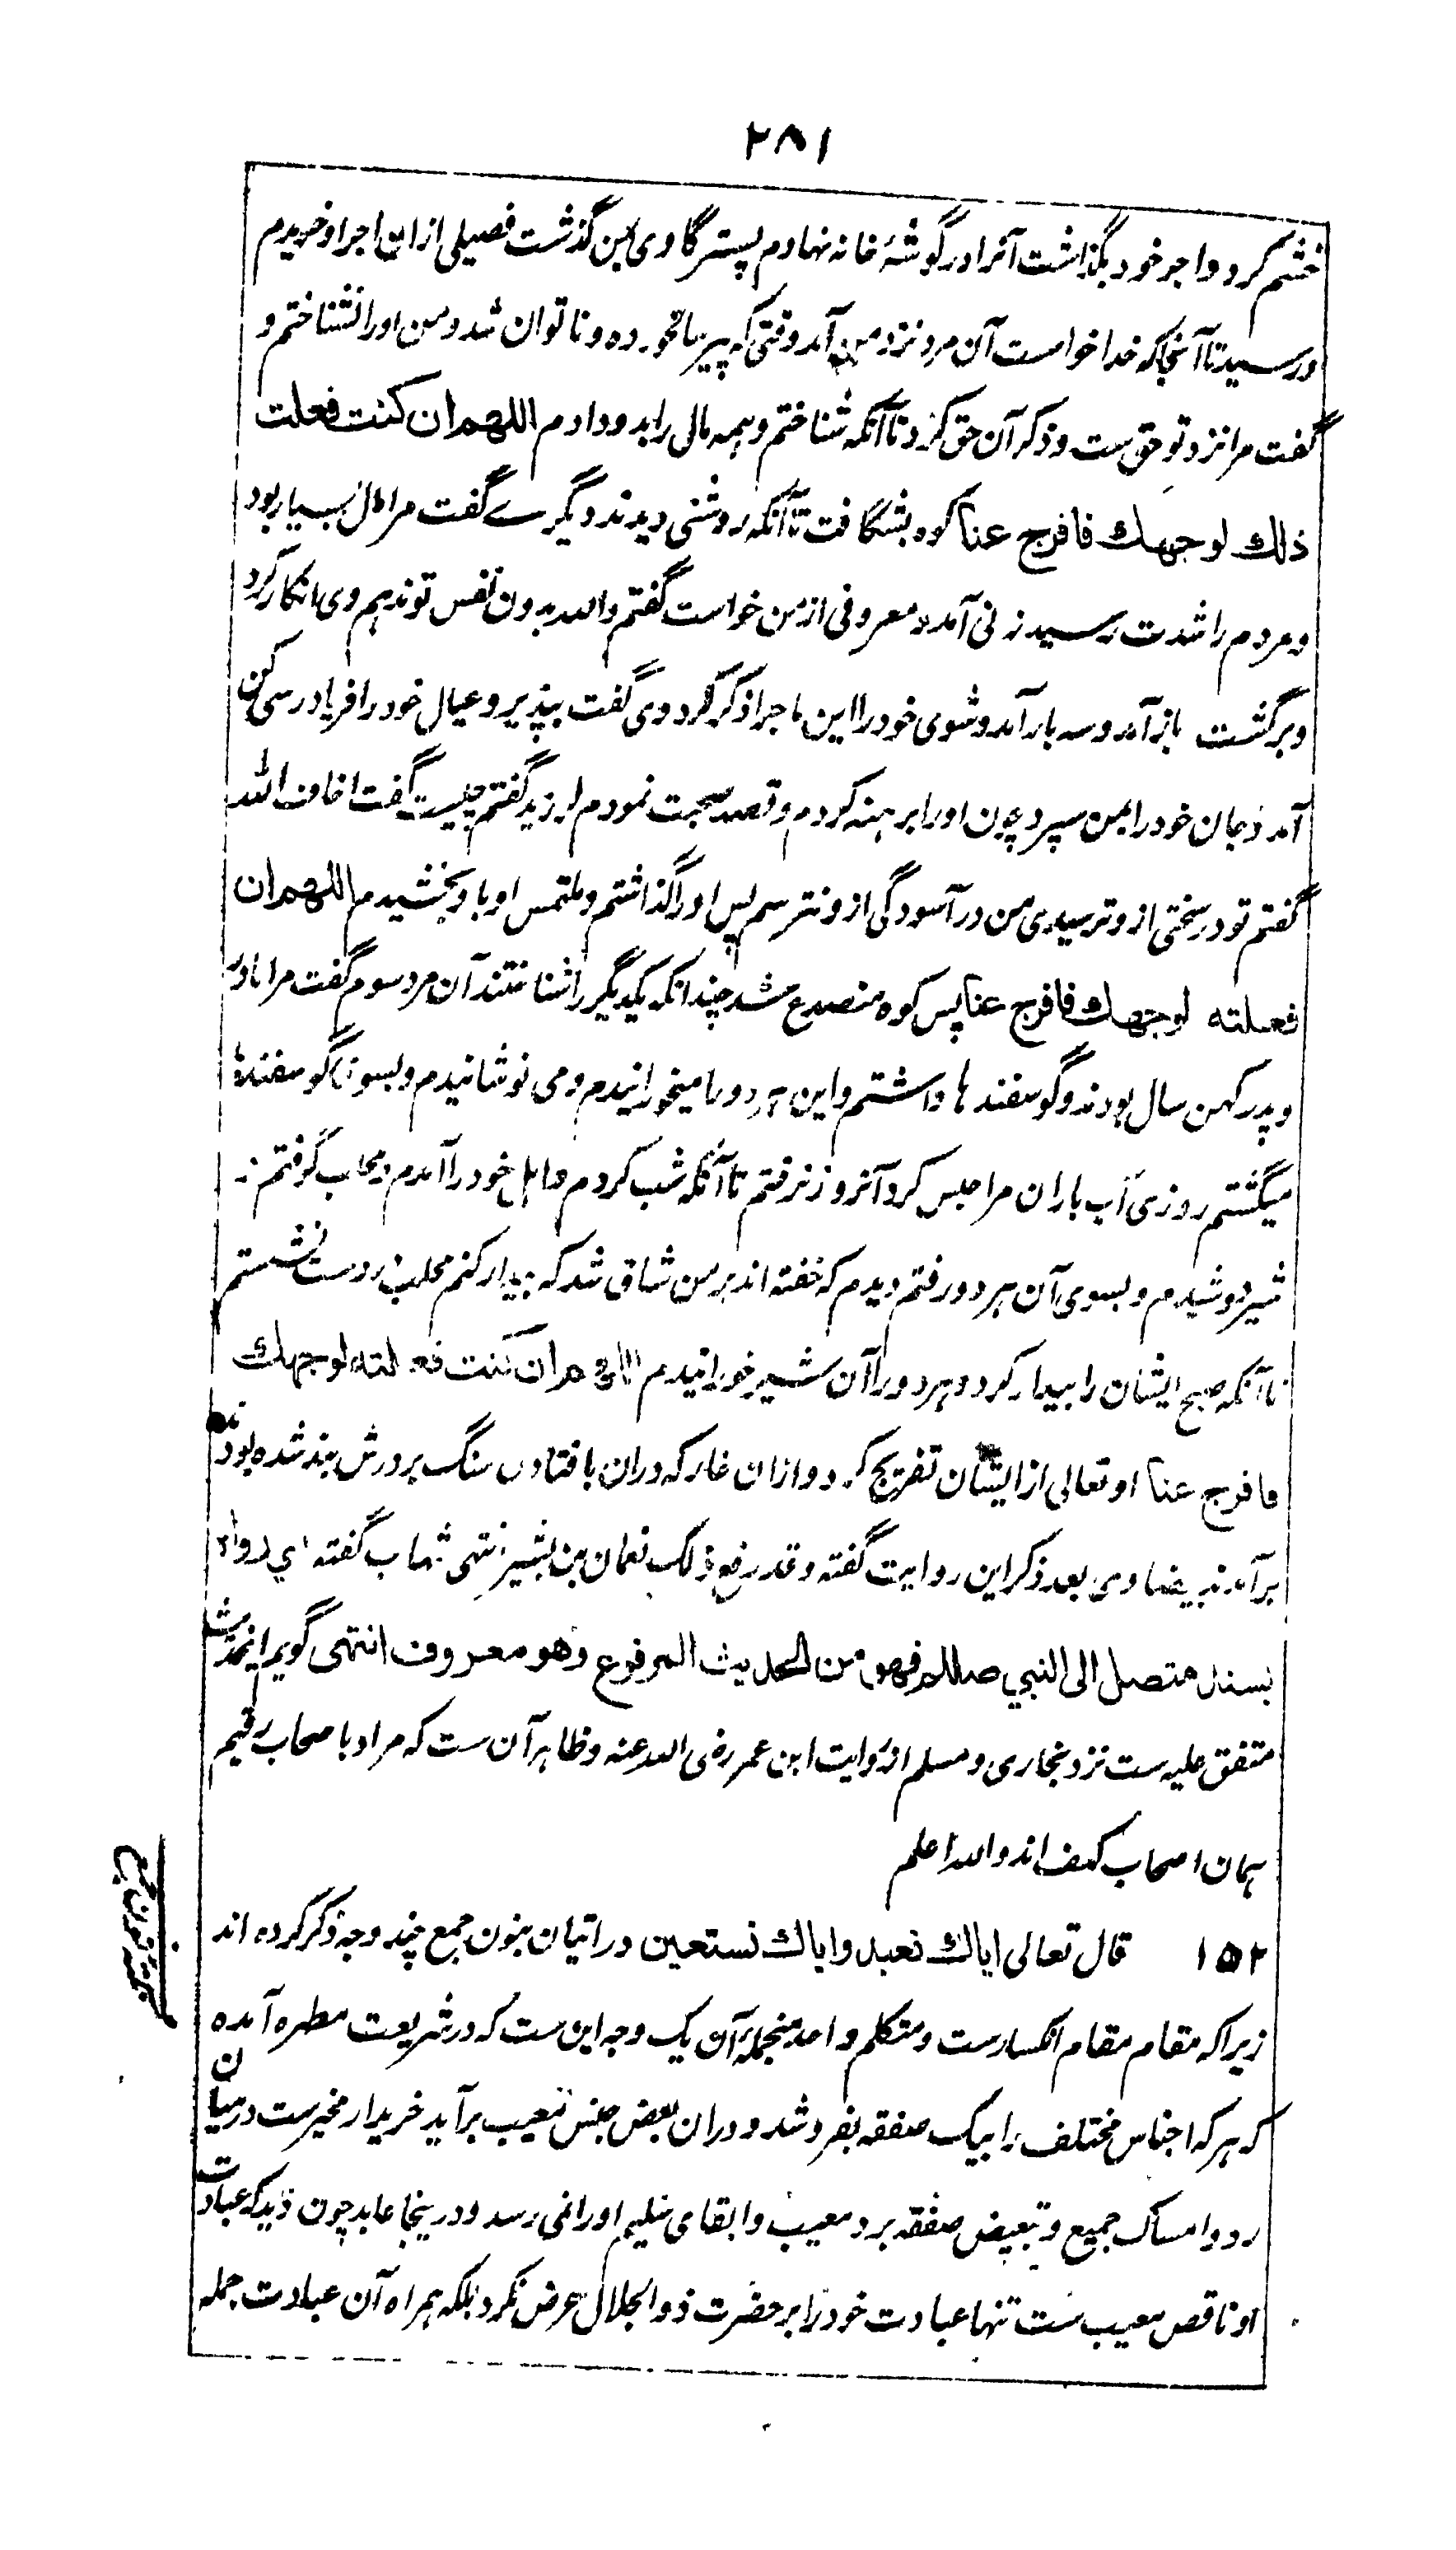 ۲۸۱
خشم کرد واجر خود بگذاشت آنرا در گوشۂ خانه نهادم پستر گاوی بمن گذشت فصیلی از این اجر او خریدم
ورسید تا آنجا که خدا خواست آن مرد نزد من آمد وقتی که پیر سالخورده وناتوان شد ومن اورا نشناختم و
گفت مرا نزد تو حق ست وذکر آن حق کرد تا آنکه شناختم وهمه مالی را بدو دادم اللهم ان کنت فعلت
ذلك لوجهك فافرج عنا کوه بشگافت تا آنکه روشنی دیدند دیگرے گفت مرا مال بسیار بود
ومردم را شدت رسید زنی آمد ومعروفی از من خواست گفتم والله بدون نفس تو ندهم وی انکار کرد
وبرگشت باز آمد وسه بار آمد وشوی خود را این ماجرا ذکر کرد وی گفت بپذیر وعیال خود را فریاد رسی کن
آمد وجان خود را بمن سپرد چون اورا برهنه کردم وقصد صحبت نمودم لرزید گفتم چیست گفت اخاف الله
گفتم تو در سختی ازو ترسیدی من در آسودگی ازو نترسم پس اورا گذاشتم وملتمس او باو بخشیدم اللهم ان
فعلته لوجهك فافرج عنا پس کوه منصدع شد چندانکه یکدیگر را شناختند آن مرد سوم گفت مرا مادر
وپدر کهن سال بودند وگوسفندها داشتم واین هر دو را میخورانیدم ومی نوشانیدم وبسوی گوسفندها
میگشتم روزی آب باران مرا حبس کرد آنروز نرفتم تا آنکه شب کردم واهل خود را آمدم ومحلب گرفتم و
شیر دوشیدم وبسوی آن هر دو رفتم دیدم که خفته اند بر من شاق شد که بیدار کنم محلب بر دست نشستم
تا آنکه صبح ایشان را بیدار کرد وهر دو را آن شیر خورانیدم اللهم ان کنت فعلته لوجهك
فافرج عنا او تعالی از ایشان تفریج کرد وازان غار که دران بافتادن سنگ بر درش بند شده بودند
برآمدند بیضاوی بعد ذکر این روایت گفته وقد رفع ذلك نعمان بن بشیر انتهی شهاب گفته اي رواه
بسند متصل الی النبي صللم فهو من الحدیث المرفوع وهو معروف انتهی گویم اینحدیث
متفق علیه ست نزد بخاری ومسلم از روایت ابن عمر رضی الله عنه وظاهر آن ست که مراد باصحاب رقیم
همان اصحاب کهف اند والله اعلم
۱۵۲ قال تعالی ایاك نعبد وایاك نستعین در اتیان بنون جمع چند وجه ذکر کرده اند
زیراکه مقام مقام انکسارست ومتکلم واحد منجملۂ آن یک وجه این ست که در شریعت مطهره آمده
که هر که اجناس مختلف را بیک صفقه بفروشد ودران بعض جنس معیب برآید خریدار مخیرست درمیان
رد وامساک جمیع وتبعیض صفقه برد معیب وابقای سلیم اورا نمی رسد ودر ینجا عابد چون دید که عبادت
او ناقص معیب ست تنها عبادت خود را بر حضرت ذو الجلال عرض نکرد بلکه همراه آن عبادت جمله